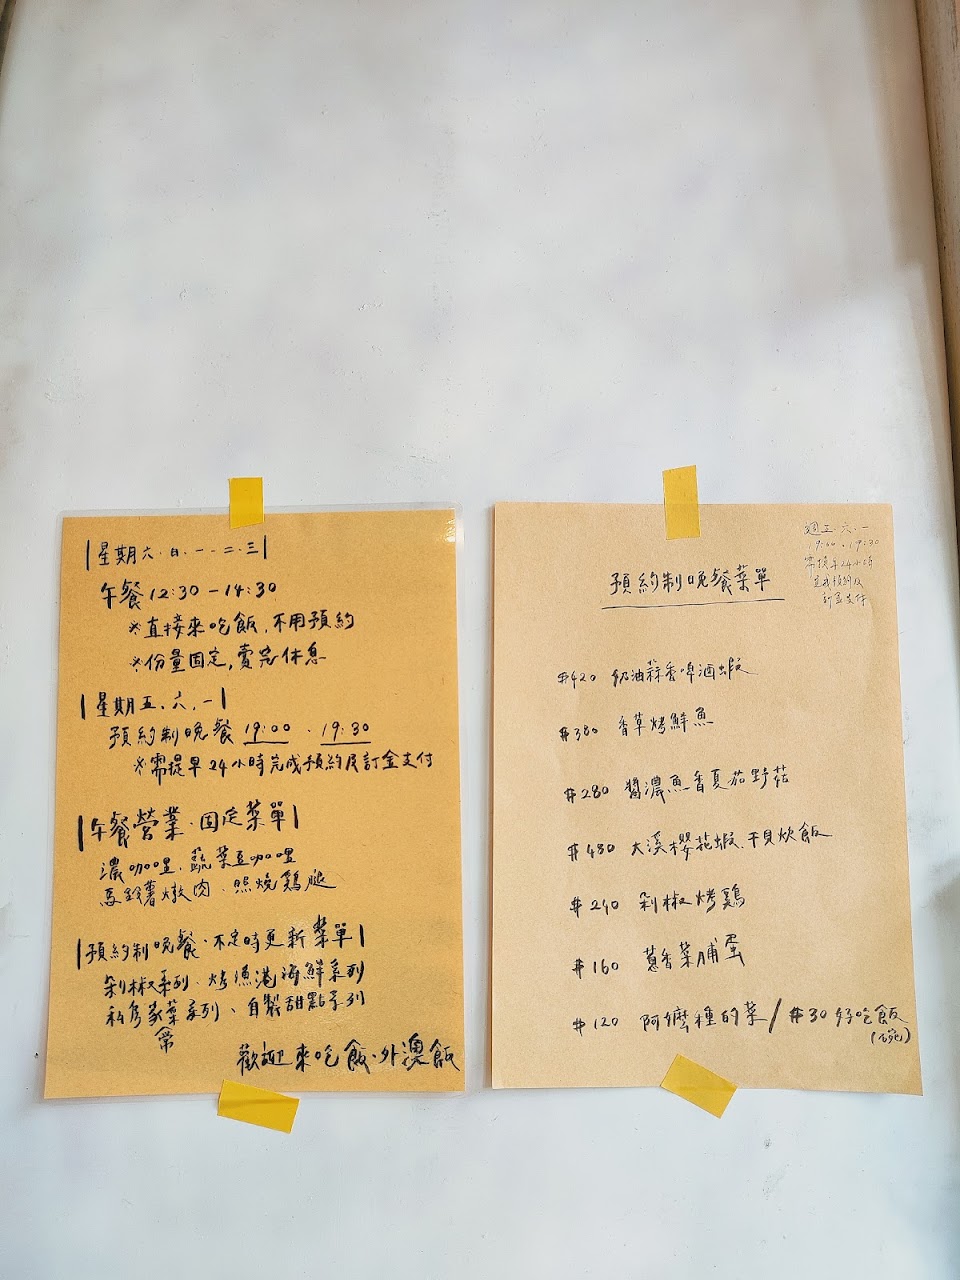 |星期六.日.一.二.三|
午餐 12:30-14:30
※直接來吃飯,不用預約
※份量固定,賣完休息
|星期五.六.一|
預約制晚餐 19:00 . 19:30
※需提早24小時完成預約及訂金支付
|午餐營業.固定菜單|
濃咖哩.蔬菜豆咖哩
馬鈴薯燉肉.照燒鷄腿
|預約制晚餐.不定時更新菜單|
剁椒系列.烤漁港海鮮系列
私房家常菜系列、自製甜點系列
歡迎來吃飯.外澳飯
週五.六.一
19:00.19:30
需提早24小時
完成預約及
訂金支付
預約制晚餐菜單
#420 奶油蒜香啤酒蝦
#380 香草烤鮮魚
#280 醬濃魚香夏茄野菇
#480 大溪櫻花蝦.干貝炊飯
#240 剁椒烤鷄
#160 蔥香菜脯蛋
#120 阿嬤種的菜/#30 好吃飯
(1碗)